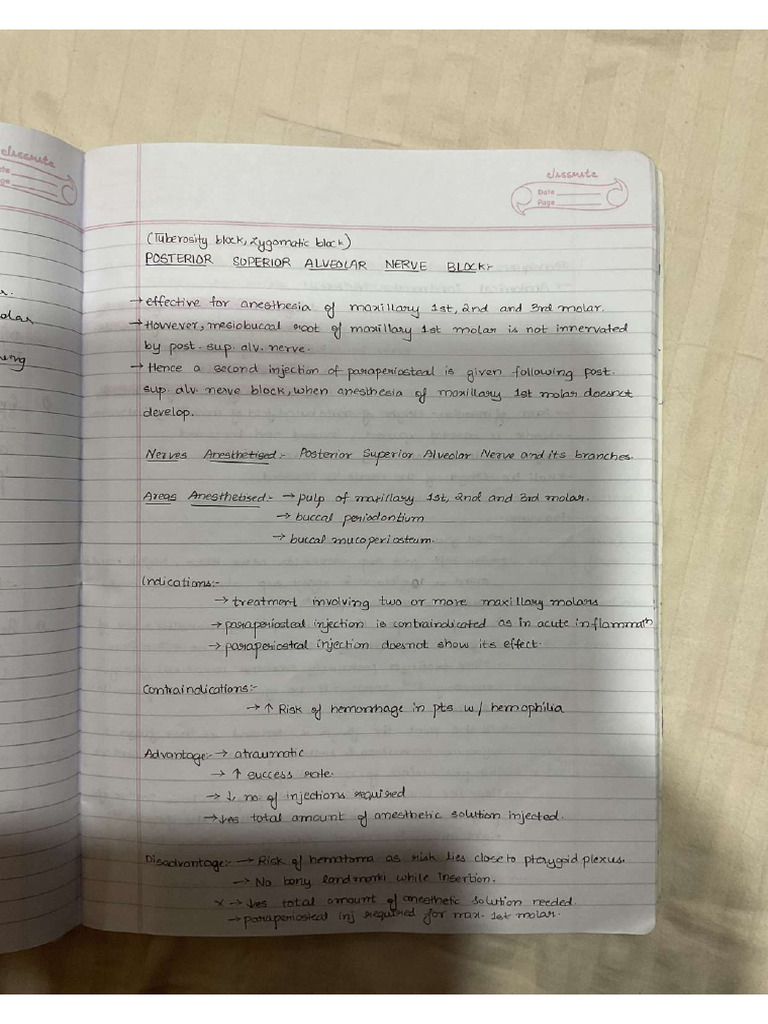 classmate
Date
Page
(Tuberosity block, Zygomatic block)
POSTERIOR SUPERIOR ALVEOLAR NERVE BLOCK:-
→ effective for anesthesia of maxillary 1st, 2nd and 3rd molar.
→ However, mesiobuccal root of maxillary 1st molar is not innervated
by post. sup. alv. nerve.
→ Hence a second injection of paraperiosteal is given following post.
sup. alv. nerve block, when anesthesia of maxillary 1st molar doesnot
develop.
Nerves Anesthetised:- Posterior Superior Alveolar Nerve and its branches.
Areas Anesthetised:- → pulp of maxillary 1st, 2nd and 3rd molar.
→ buccal periodontium
→ buccal mucoperiosteum.
Indications:-
→ treatment involving two or more maxillary molars
→ paraperiosteal injection is contraindicated as in acute inflammatn
→ paraperiosteal injection doesnot show its effect.
Contraindications:-
→ ↑ Risk of hemorrhage in pts w/ hemophilia
Advantage:- → atraumatic
→ ↑ success rate.
→ ↓ no. of injections required
→ ↓es total amount of anesthetic solution injected.
Disadvantage:- → Risk of hematoma as risk lies close to pterygoid plexus.
→ No bony landmark while insertion.
x → ↓es total amount of anesthetic solution needed.
→ paraperiosteal inj required for max. 1st molar.